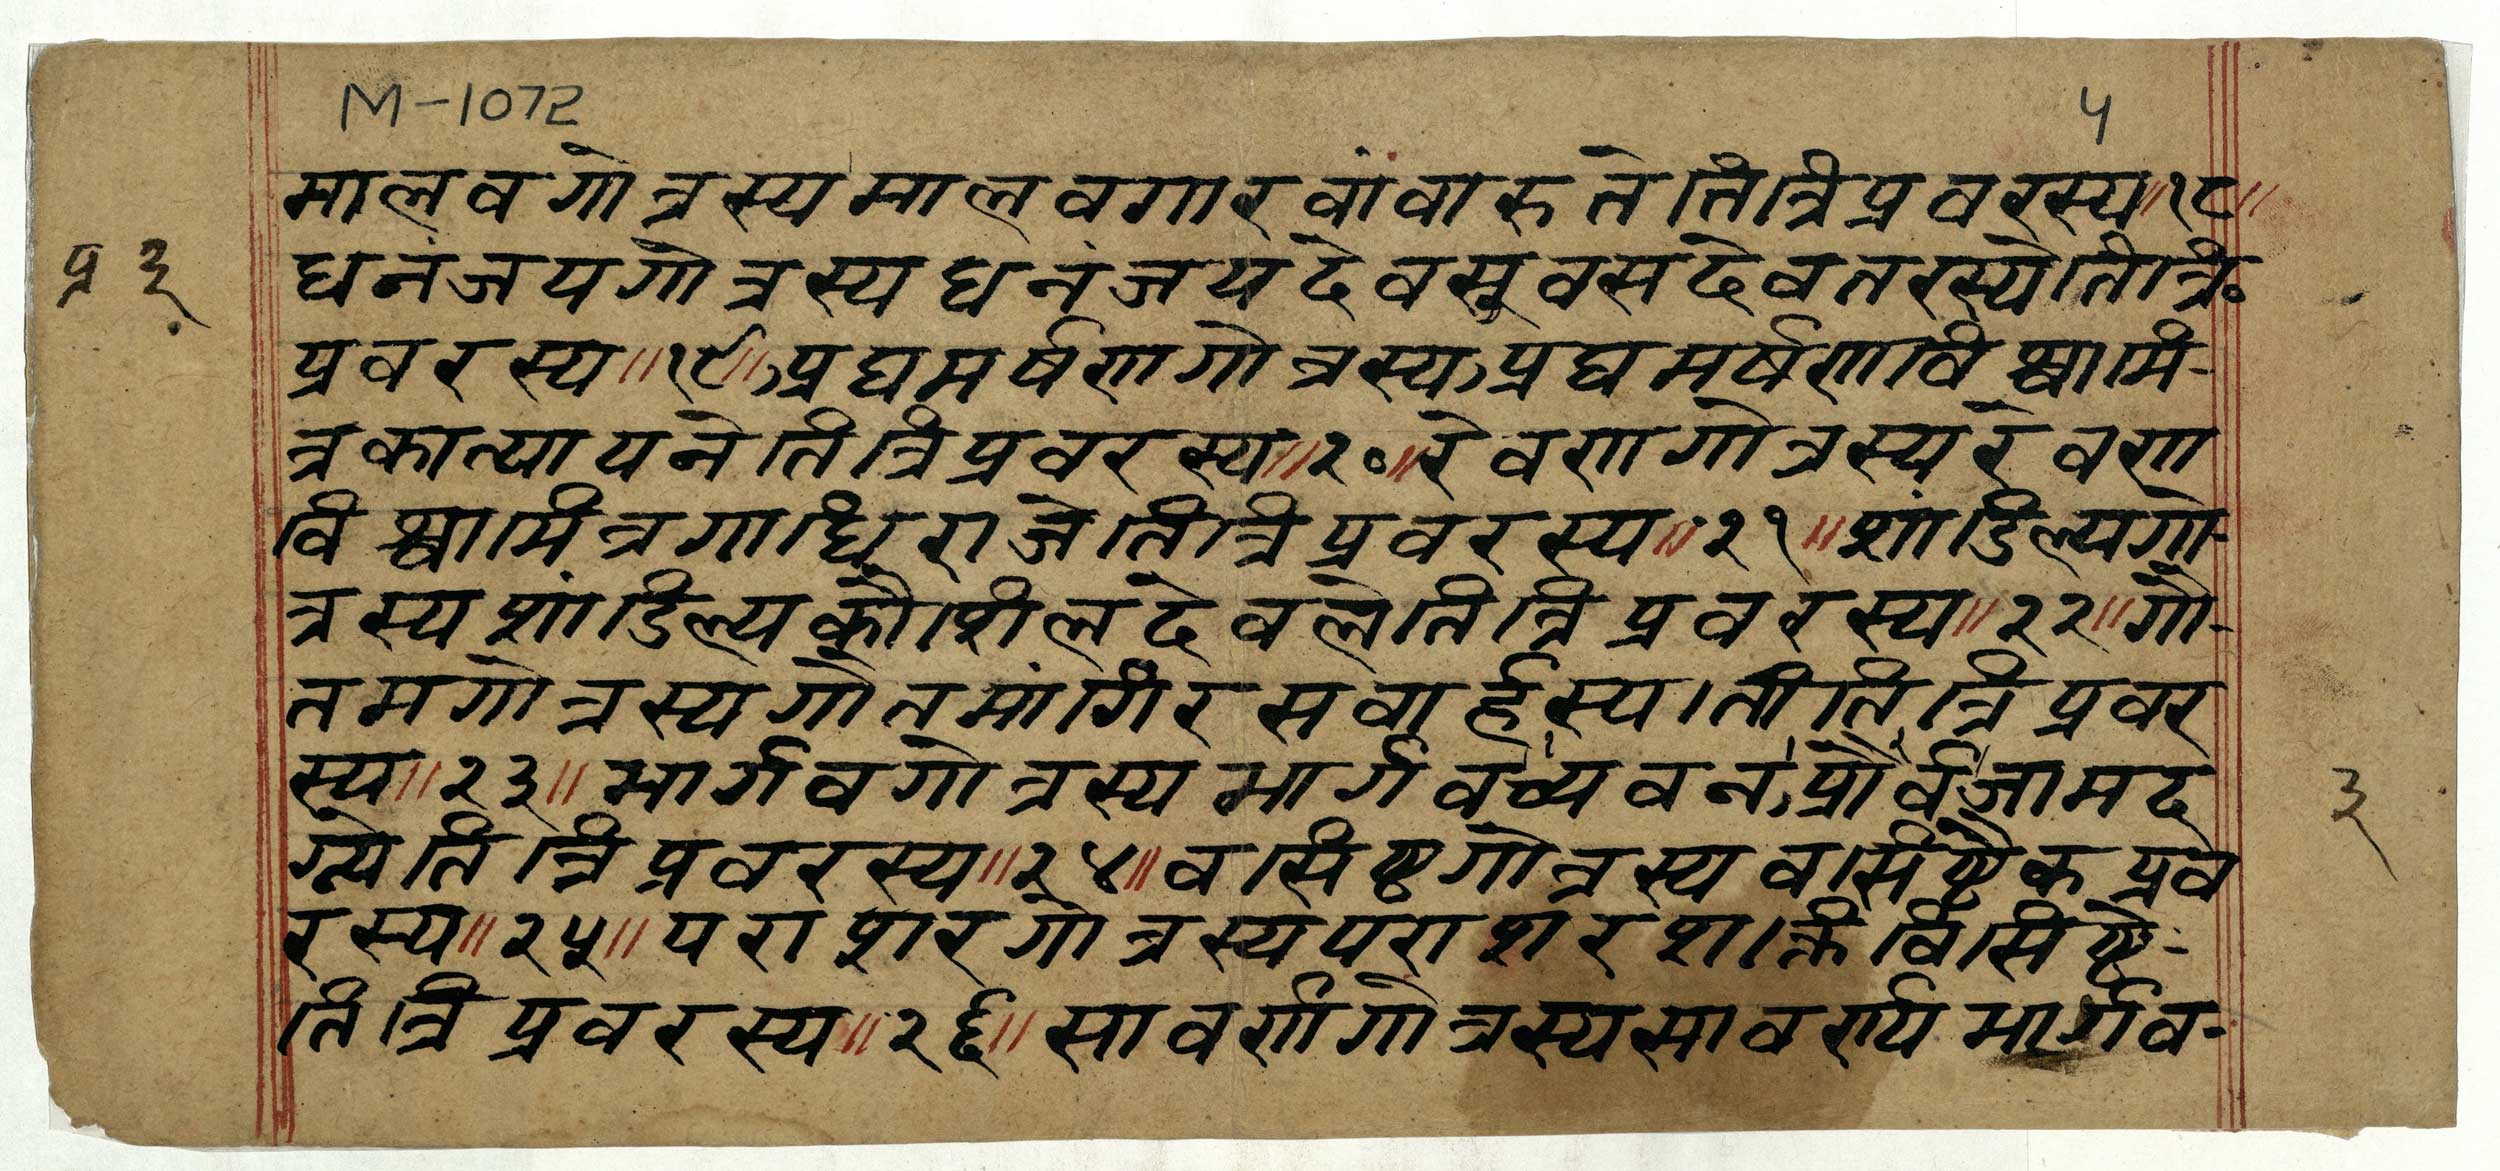 M-1072
५
मालवगोत्रस्य मालवगारवांवारुतेतित्रिप्रवरस्य॥१८॥
प्र ३
धनंजयगोत्रस्य धनंजयदेवसूवसदेवतरस्येतित्रि॰
प्रवरस्य॥१९॥प्रघमर्षणगोत्रस्यप्रघमर्षणविश्वामि-
त्रकात्यायनेतित्रिप्रवरस्य॥२०॥रेवणगोत्रस्यरेवण
विश्वामित्रगाधिराजेतित्रिप्रवरस्य॥२१॥शांडिल्यगो-
त्रस्यशांडिल्यकौशिलदेवलेतित्रिप्रवरस्य॥२२॥गौ-
तमगोत्रस्यगौतमांगिरसवार्हस्यतीतित्रिप्रवर
स्य॥२३॥भार्गवगोत्रस्यभार्गवच्यवनप्रौर्वजामद
ग्न्येतित्रिप्रवरस्य॥२४॥वसिष्ठगोत्रस्यवसिष्ठैकप्रव
३
रस्य॥२५॥पराशरगोत्रस्यपराशरशक्तिवसिष्ठे-
तित्रिप्रवरस्य॥२६॥सावर्णगोत्रस्यसावर्ण्यभार्गव-